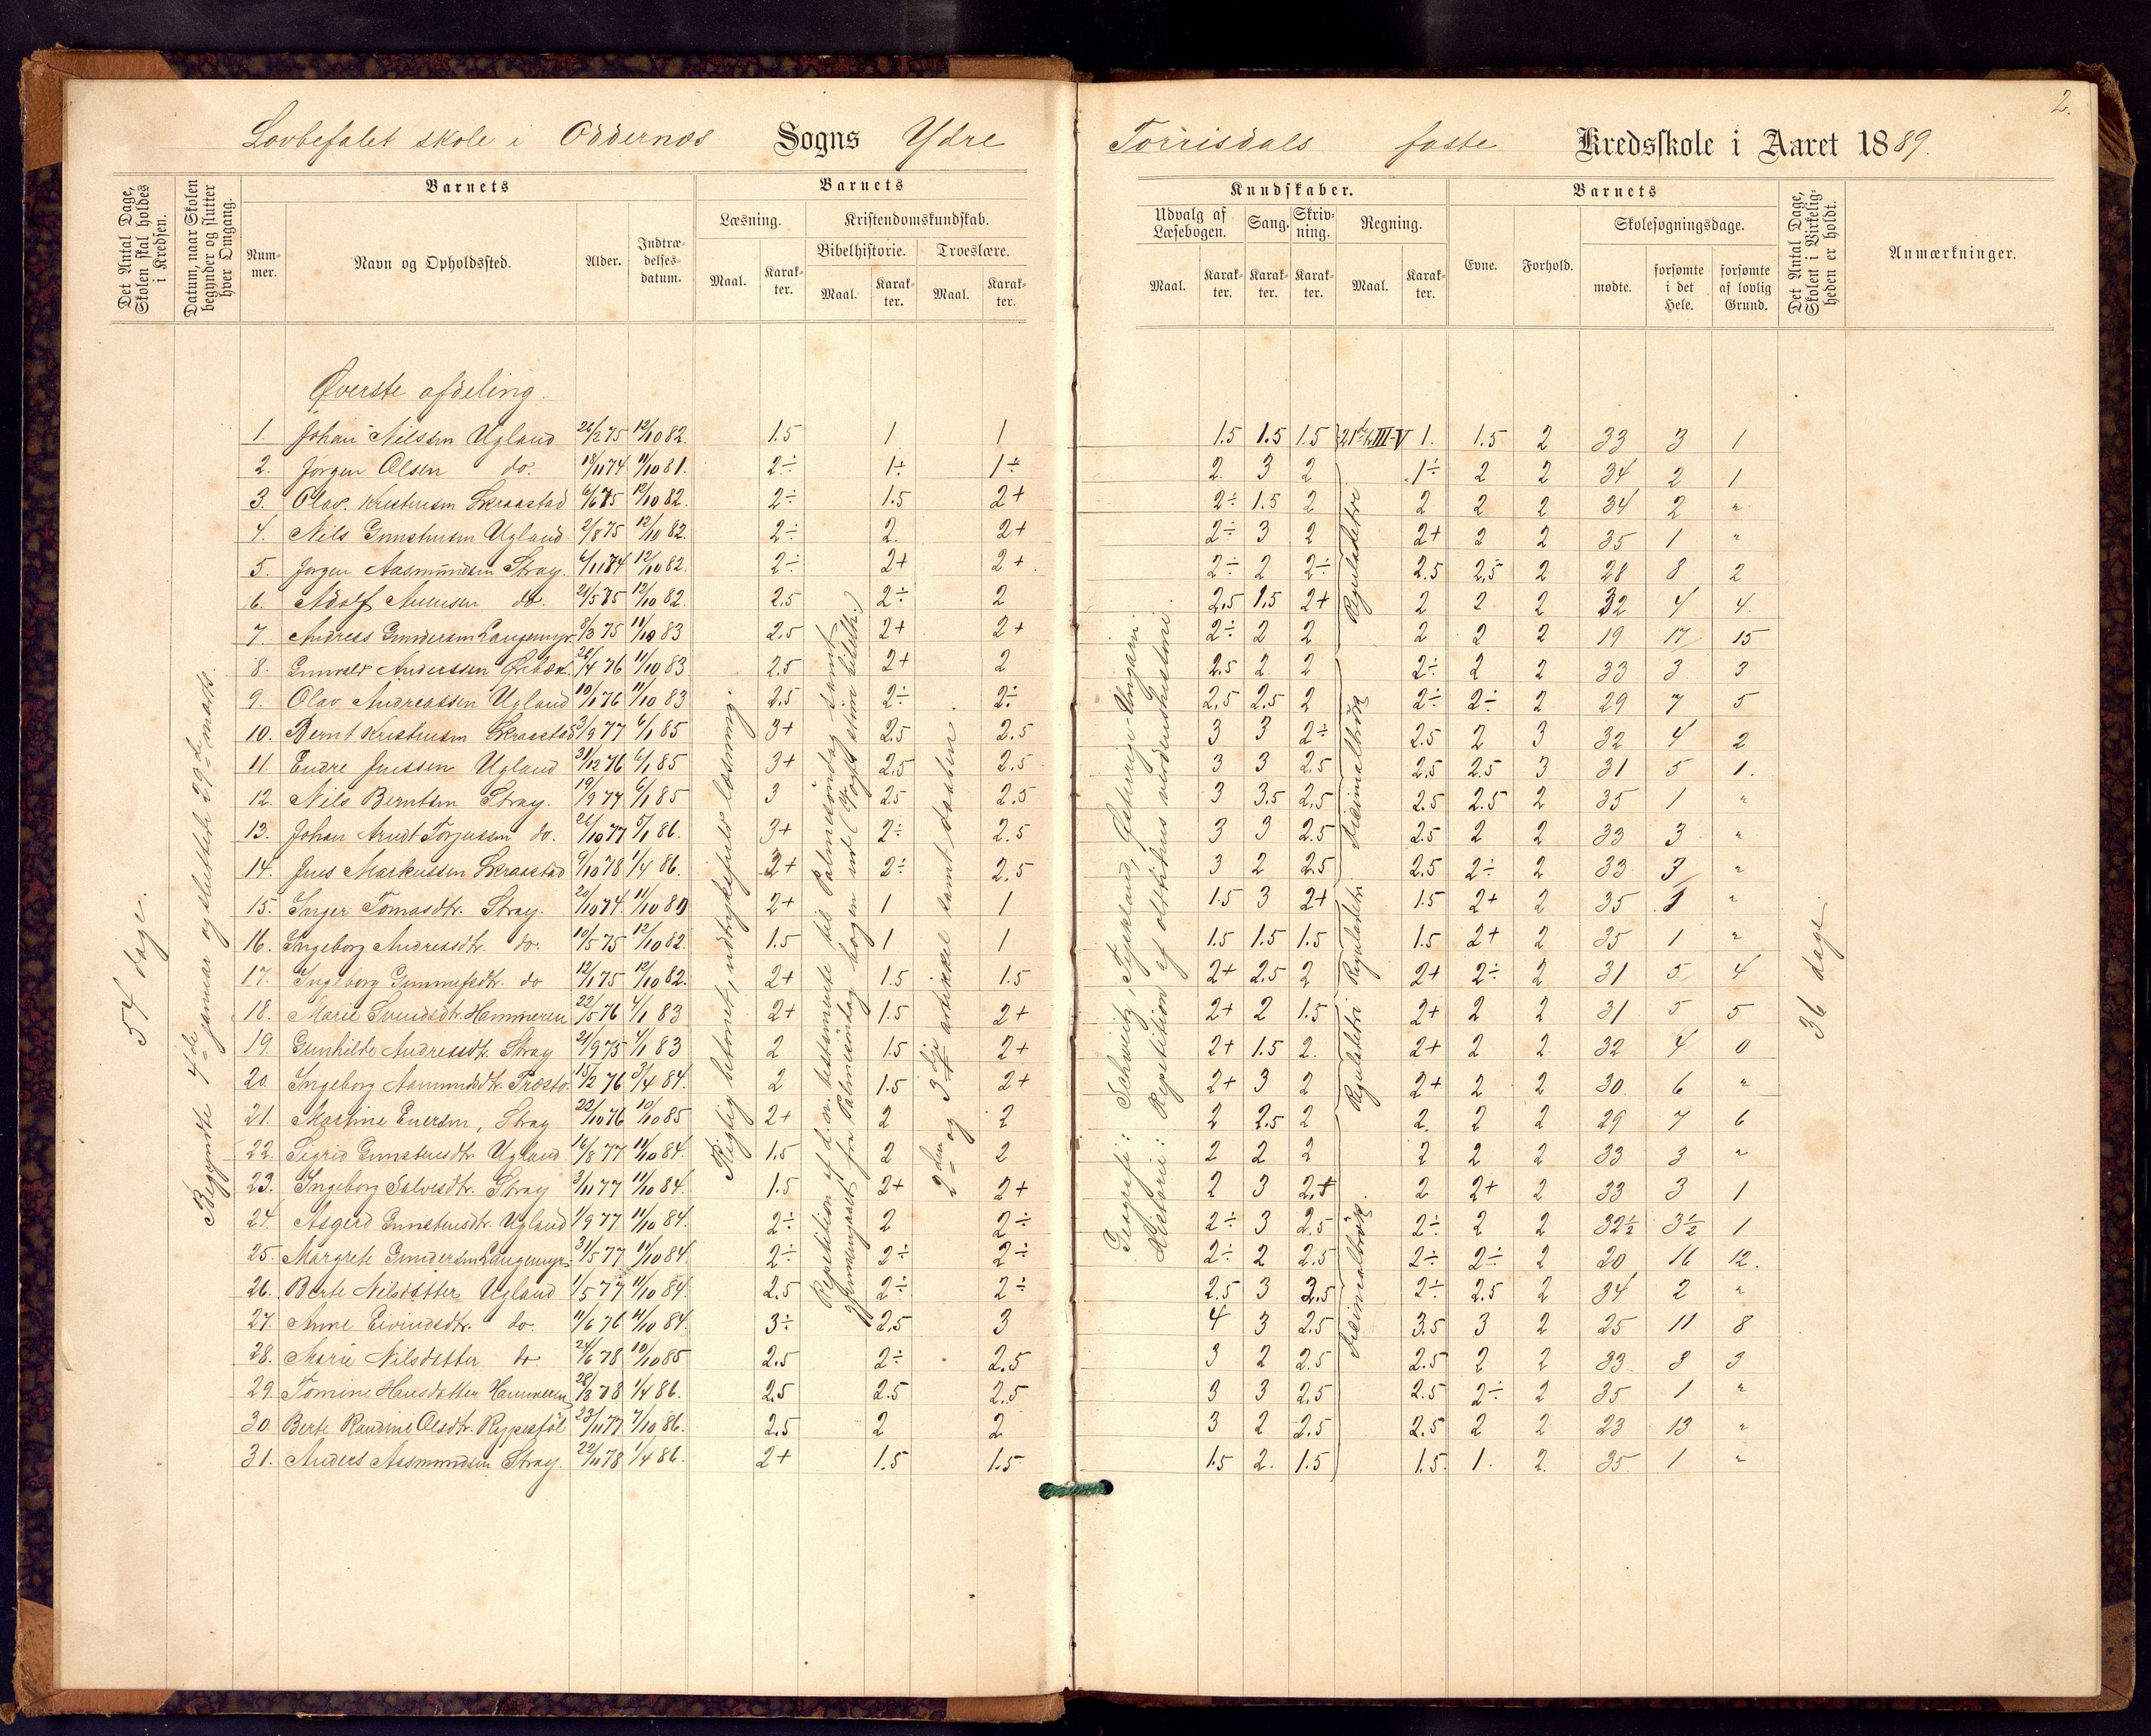 2.
Lovbefalet skole i Oddernes Sogns Ydre Torrisdals faste Kredsskole i Aaret 1889.
Det Antal Dage, Skolen skal holdes i Kredsen.
Datum, naar Skolen begynder og slutter hver Omgang.
Barnets
Nummer.
Navn og Opholdssted.
Alder.
Indtrædelsesdatum.
Barnets Kundskaber.
Læsning.
Maal. Karakter.
Kristendomskundskab.
Bibelhistorie. Troeslære.
Maal. Karakter. Maal. Karakter.
Udvalg af Læsebogen. Sang. Skrivning. Regning.
Maal. Karakter. Karakter. Karakter. Maal. Karakter.
Barnets
Evne. Forhold. Skolesøgningsdage.
mødte. forsømte i det Hele. forsømte af lovlig Grund.
Det Antal Dage, Skolen i Virkeligheden er holdt.
Anmærkninger.
54 dage.
Begyndte 4de januar og sluttede 29de mars.
Øverste afdeling.
1. Johan Nilssen Ugland 12/10 82. 1.5 1 1 1.5 1.5 1.5 III-V 1. 1.5 2 33 3 1
2. Jørgen Olsen do. 18/11 74 11/10 81. 2÷ 1÷ 1÷ 2. 3 2 1÷ 2 2 34 2 1
3. Olav Kristensen Skraastad 6/6 75 12/10 82. 2÷ 1.5 2+ 2÷ 1.5 2 2 2 2 34 2 "
4. Nils Gunstensen Ugland 2/8 75 12/10 82. 2÷ 2. 2+ 2÷ 3 2 2+ 2 2 35 1 "
5. Jørgen Aasmundsen Stray. 12/10 82. 2÷ 2+ 2+ 2÷ 2 2÷ 2.5 2.5 2 28 8 2
6. Adolf do. 21/5 75 12/10 82. 2.5 2÷ 2 2.5 1.5 2+ 2 2 2 32 4 4
7. Andreas Gundersen Langemyr. 11/10 83 2.5 2+ 2+ 2÷ 2 2 2 2 2 19 17 15
8. Anderssen 26/4 76 11/10 83 2.5 2+ 2 2.5 2 2 2÷ 2 2 33 3 3
9. Olav Andreassen Ugland 10/1 76 11/10 83 2.5 2÷ 2÷ 2.5 2.5 2 2÷ 2÷ 2 29 7 5
10. Bernt Kristensen Skraastad 3/9 77 6/1 85 3+ 2.5 2.5 3 3 2÷ 2.5 2 3 32 4 2
11. Endre Jenssen Ugland 31/12 76 6/1 85 3+ 2.5 2.5 3 3 2.5 2.5 2.5 3 31 5 1.
12. Nils Berntsen Stray. 19/9 77 6/1 85 3 2.5 2.5 3 3.5 2.5 2.5 2.5 2 35 1 "
13. Johan Arndt Torjussen do. 5/1 86. 3+ 2÷ 2.5 3 3 2.5 2.5 2 2 33 3 "
14. Jens Markussen Skraastad 9/10 78 1/4 86. 2+ 2÷ 2.5 3 2 2.5 2.5 2÷ 2 33 3 "
15. Inger Tomasdtr. Stray. 20/10 74. 2+ 1 1 1.5 3 2+ 1.5 2+ 2 35 1 "
16. Ingeborg Andreasdtr. do. 10/5 75 12/10 82. 1.5 1 1 1.5 1.5 1.5 1.5 2+ 2 35 1 "
17. Ingeborg do 12/1 75 12/10 82. 2+ 1.5 1.5 2+ 2.5 2 2+ 2÷ 2 31 5 4
18. Marie Svendsdtr. Hammeren 22/5 76 4/1 83 2+ 1.5 2+ 2+ 2 1.5 2+ 2 2 31 5 5
19. Gunhilde Andreasdtr. Stray 21/9 75 4/1 83 2 1.5 2+ 2+ 1.5 2. 2+ 2 2 32 4 0
20 Ingeborg 15/2 76 3/4 84. 2 1.5 2+ 2+ 3 2 2+ 2 2 30. 6 "
21. Stray 22/10 76 10/10 85 2+ 2 2 2 2.5 2 2. 2 2 29 7 6
22. Sigrid Gunstensdtr. Ugland 16/8 77 11/10 84. 1.5 2 2 2 2 2 2 2 2 33 3 "
23. Ingeborg Salvesdtr. Stray 3/11 77 11/10 84. 1.5 2+ 2+ 2 3 2+ 2 2+ 2 33 3 1
24. Asgerd Gunstensdtr. Ugland 1/9 77. 11/10 84. 2÷ 2 2÷ 2÷ 3 2.5 2÷ 2 2 32½ 3½ 1
25. Margrete Gundersen Langemyr 31/5 77 11/10 84. 2÷ 2÷ 2÷ 2÷ 2 2.5 2÷ 2÷ 2 20 16 12.
26. Berte Nilsdatter Ugland 1/5 77 11/10 84. 2.5 2÷ 2÷ 2.5 3 2.5 2÷ 2.5 2 34 2 "
27. Anne Eivindsdtr. do. 11/6 76 11/10 84. 3÷ 2.5 3 4 3 2.5 3.5 3 2 25 11 8
28. Marie Nilsdatter do. 24/6 78 10/10 85 2.5 2÷ 2.5 3 2 2.5 2.5 2 2 33 3 3
29. Tomine Hansdatter Hammeren 28/3 78 1/4 86. 2.5 2.5 2.5 3 3 2.5 2.5 2÷ 2 35 1 "
30. Berte Olsdtr. 23/11 77 7/10 86. 2.5 2 2 3 2 2.5 2.5 2 2 23 13 "
31. Anders Aasmundsen Stray. 22/11 78 1/4 86. 2+ 1.5 1.5 1.5 2. 1.5 1.5. 1. 2. 35. 1 "
Rigtig betonet, udtryksfuld læsning.
Repetition af d. n. testamente til Palmesøndag samt
gjennemgaaet fra Palmesøndag bogen ud (Vogts store bibelh.)
2den og 3dje artikkel samt daaben.
Geografi: Schweitz, Tyskland, Østerrige-Ungarn.
Historie: Repetition af oldtidens verdenshistorie.
Reguladetri
Decimalbrøk
Reguladetri
Reguladetri
Decimalbrøk.
36 dage.